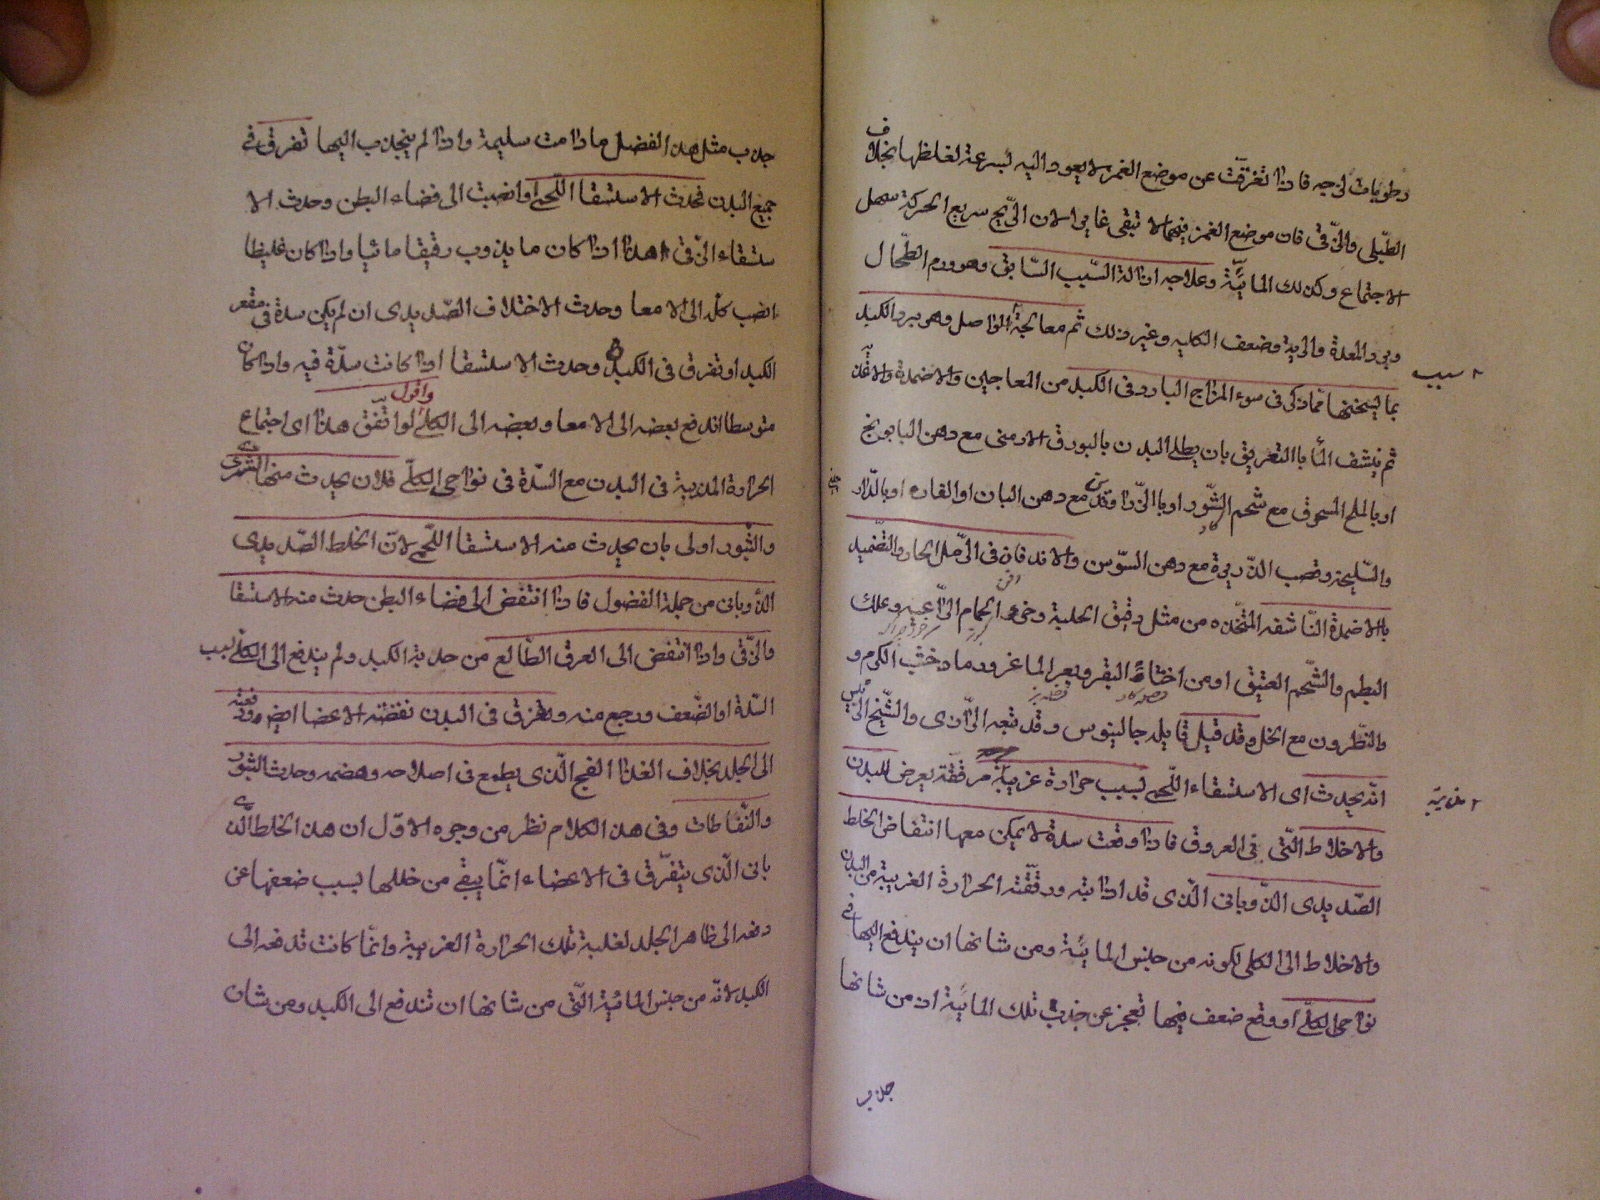 رطوبات لزجه فاذا تفرقت عن موضع الغمز لا يعود اليه لسرعة لغلظها بخلاف
الطبلى والزقى فان موضع الغمز فيهما لا تبقى غايرا لان الريح سريع الحركة سهل
الاجتماع وكذلك المائية وعلاجه ازالة السبب السابق وهو ورم الطحال
وبرد المعدة والرية وضعف الكليه وغير ذلك ثم معالجة الواصل وهو برد الكبد
سبب
بما يسخنها مما ذكر فى سوء المزاج البارد فى الكبد من المعاجين والاضمدة والاغذية
ثم ينشف الماء بالتعريق بان يطلى البدن بالبورق الارمنى مع دهن البابونج
او بالملح المسحوق مع شحم الثور او بالزراوند مع دهن البان او الغار او بالدار
والسليخة وقصب الذريرة مع دهن السوسن والاندفان فى الرمل الحار والتضميد
بالاضمدة الناشفه المتخذه من مثل دقيق الحلبة وخرو الحمام الراعبيه وعلك
البطم والشحم العتيق او من اختاء البقر وبعر الماعز ورماد خشب الكرم و
والنطرون مع الخل وقد قيل قايله جالينوس وقد تبعه الرازى والشيخ الرئيس
انه يحدث اى الاستسقاء اللحمى بسبب حرارة غريبة مرققة يعرض للبدن
مذيبة
والاخلاط التى فى العروق فاذا وقعت سدة لا يمكن معها انتفاض الخلط
الصديدى الذوبانى الذى قد اذابته ورققته الحرارة الغريبة من البدن
والاخلاط الى الكلى لكونه من جنس المائية ومن شانها ان يندفع اليها فى
نواحى الكلى او وقع ضعف فيها تعجز عن جذب تلك المائية اذ من شانها
جذب
جذب مثل هذا الفضل ما دامت سليمة واذا لم ينجذب اليها تفرق فى
جميع البدن فحدث الاستسقا اللحمى او انصبت الى فضاء البطن وحدث الا
ستسقاء الزقى هذا اذا كان ما يذوب رقيقا مائيا واذا كان غليظا
انصب كله الى الامعا وحدث الاختلاف الصديدى ان لم يكن سدة فى مقعر
الكبد او تفرق فى الكبد وحدث الاستسقا اذا كانت سدة فيه واذا كان
متوسطا اندفع بعضه الى الامعا وبعضه الى الكلى واقول لو اتفق هذا اى اجتماع
الحرارة المذيبة فى البدن مع السدة فى نواحى الكلى فلان يحدث منها الشرى
والبثور اولى بان يحدث منه الاستسقا اللحمى لان الخلط الصديدى
الذوبانى من جملة الفضول فاذا انتفض الى فضاء البطن حدث منه الاستسقا
والزقى واذا انتفض الى العرق الطالع من حدبة الكبد ولم يندفع الى الكلى بسبب
السدة او الضعف ورجع منه وتفرق فى البدن نفضته الاعضا ايضا ودفعته
الى الجلد بخلاف الغذا الفج الذى يطمع فى اصلاحه وهضمه وحدث البثور
والنفاطات وفى هذا الكلام نظر من وجوه الاول ان هذا الخلط الذو
بانى الذى يتفرق فى الاعضاء انما يبقى من خللها بسبب ضعفها عن
دفعه الى ظاهر الجلد لغلبة تلك الحرارة الغريبة وانما كانت تدفعه الى
الكبد لانه من جنس المائية التى من شانها ان تندفع الى الكبد ومن شان